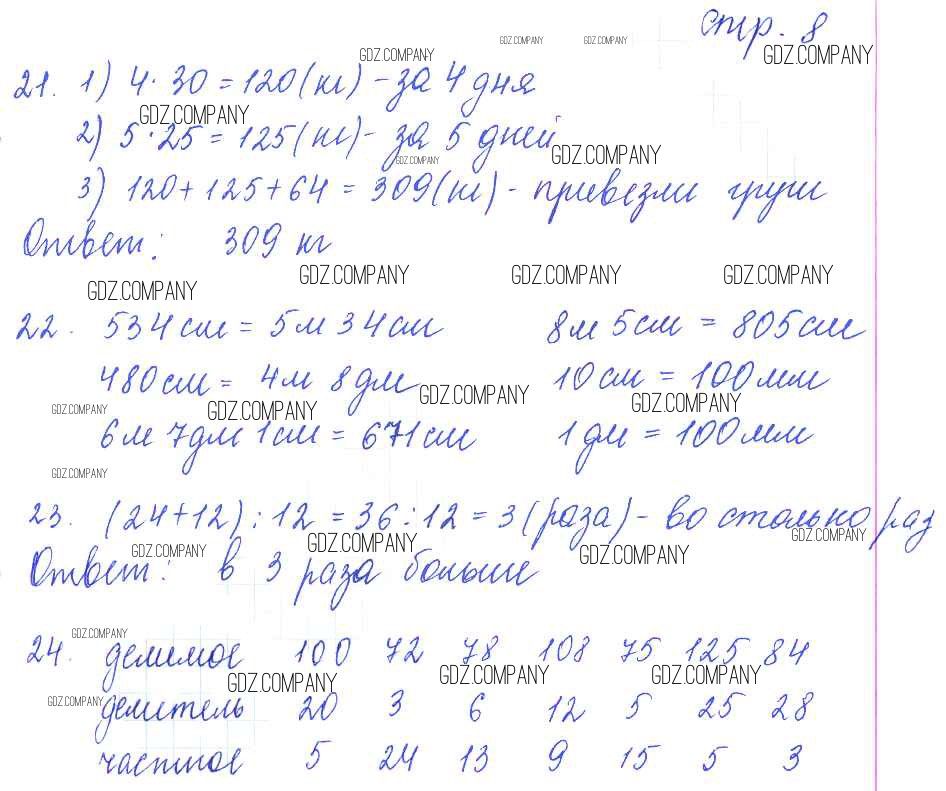 стр. 8
GDZ.COMPANY GDZ.COMPANY GDZ.COMPANY GDZ.COMPANY
21. 1) 4 · 30 = 120 (кг) - за 4 дня
GDZ.COMPANY
2) 5 · 25 = 125 (кг) - за 5 дней
GDZ.COMPANY GDZ.COMPANY
3) 120 + 125 + 64 = 309 (кг) - привезли груш
Ответ: 309 кг
GDZ.COMPANY GDZ.COMPANY GDZ.COMPANY GDZ.COMPANY
22. 534 см = 5 м 34 см 8 м 5 см = 805 см
480 см = 4 м 8 дм 10 см = 100 мм
GDZ.COMPANY GDZ.COMPANY GDZ.COMPANY GDZ.COMPANY
6 м 7 дм 1 см = 671 см 1 дм = 100 мм
GDZ.COMPANY
23. (24 + 12) : 12 = 36 : 12 = 3 (раза) - во столько раз
GDZ.COMPANY GDZ.COMPANY GDZ.COMPANY GDZ.COMPANY
Ответ: в 3 раза больше
GDZ.COMPANY
24. делимое 100 72 78 108 75 125 84
GDZ.COMPANY GDZ.COMPANY GDZ.COMPANY
GDZ.COMPANY
делитель 20 3 6 12 5 25 28
частное 5 24 13 9 15 5 3